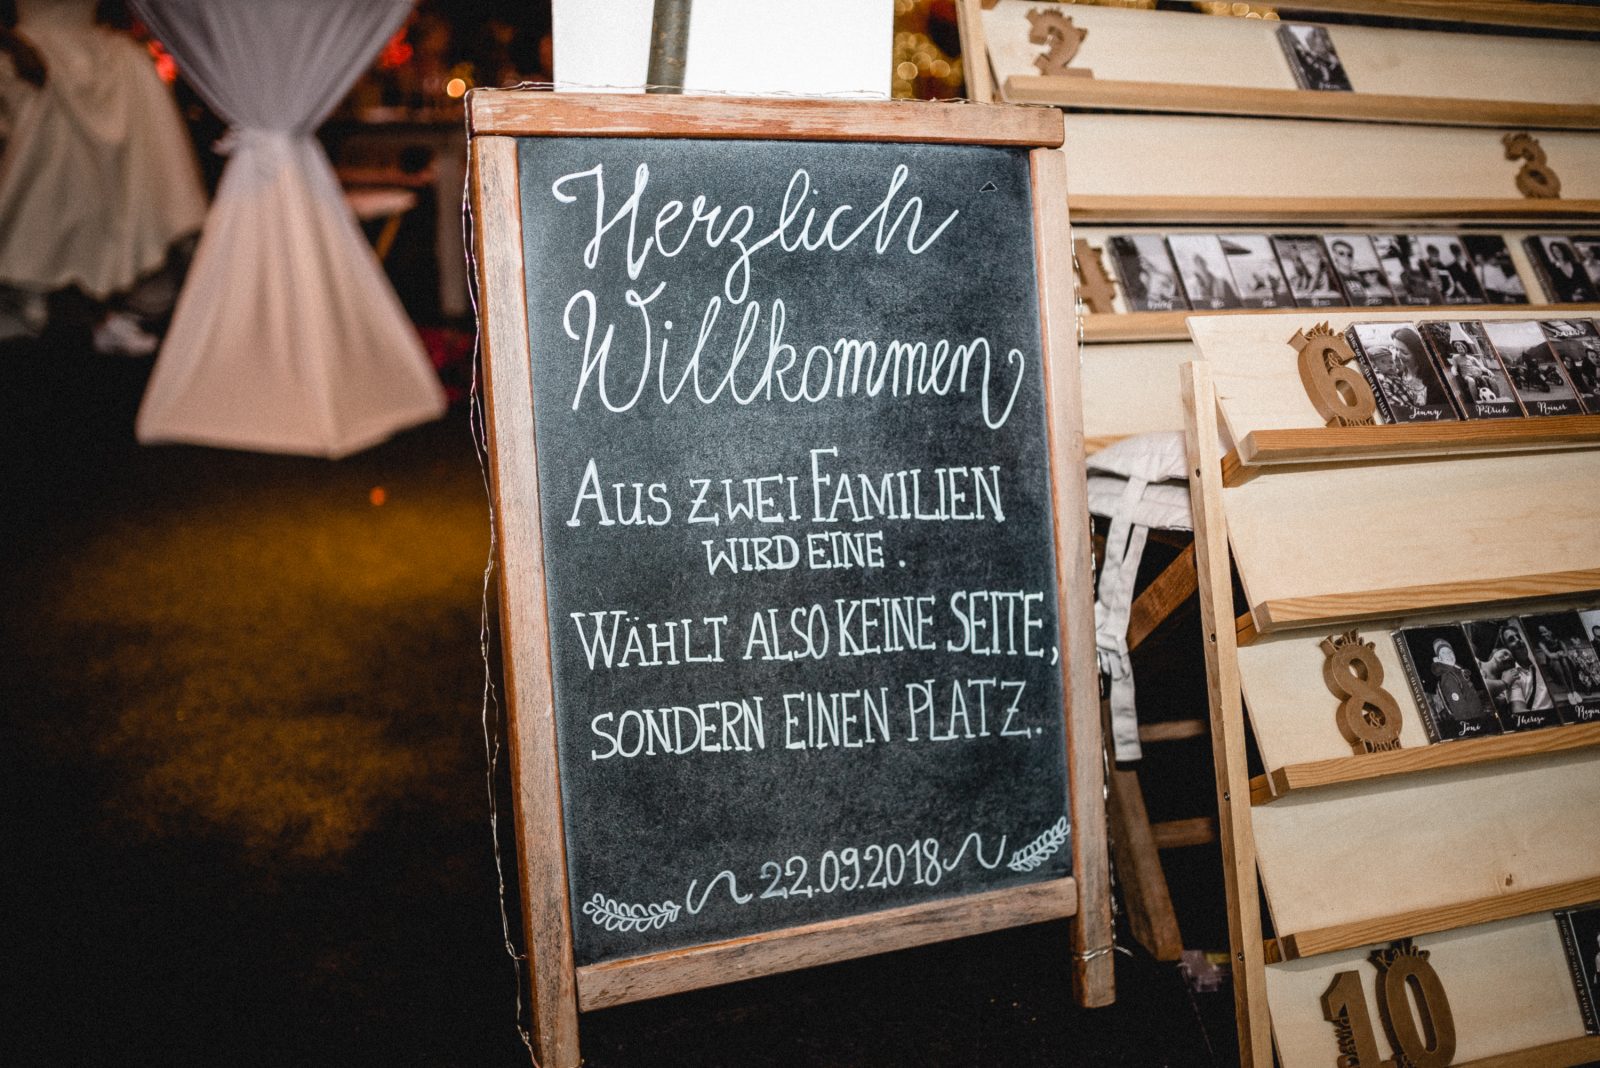 Herzlich
Willkommen
Aus zwei Familien
wird eine.
Wählt also keine Seite,
sondern einen Platz.
22.09.2018
2
3
4
6
&
David
Jenny
Patrick
Rainer
Kathi
8
&
David
Toni
Theresa
Kathi
10
David